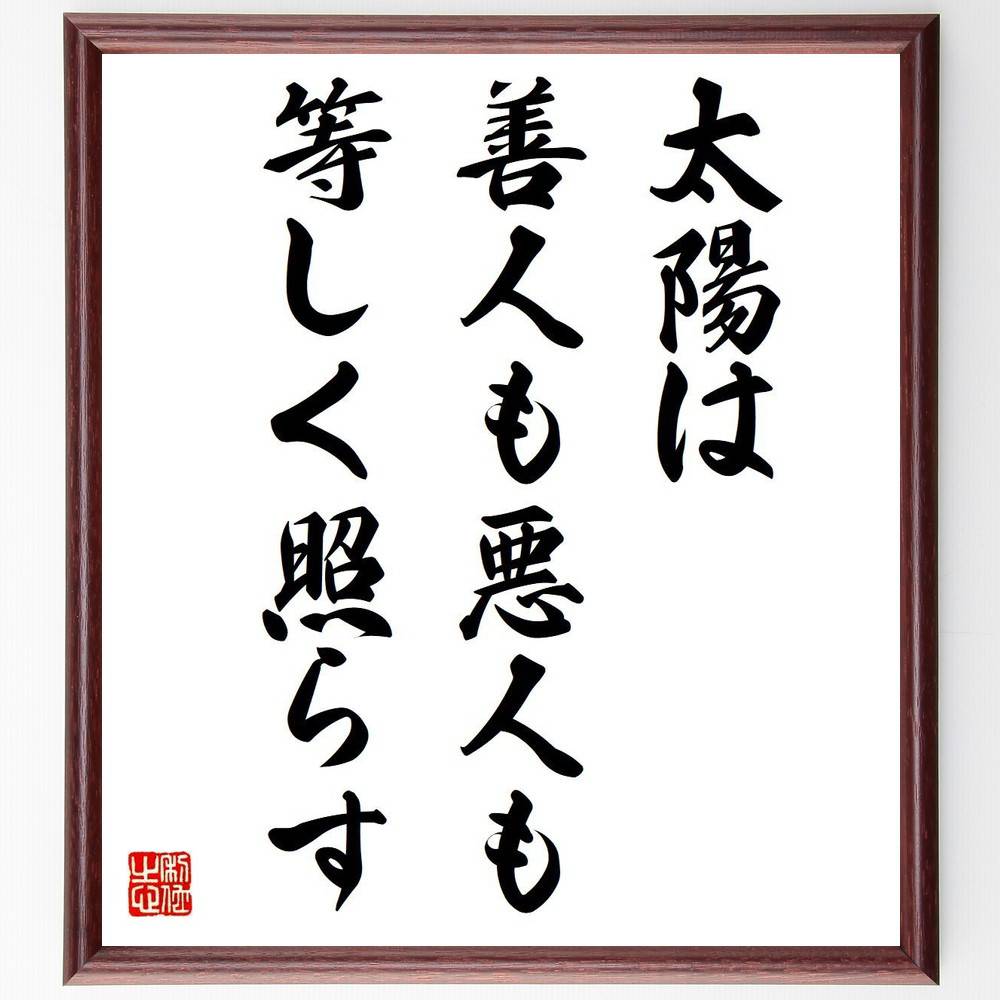 太陽は
善人も悪人も
等しく照らす